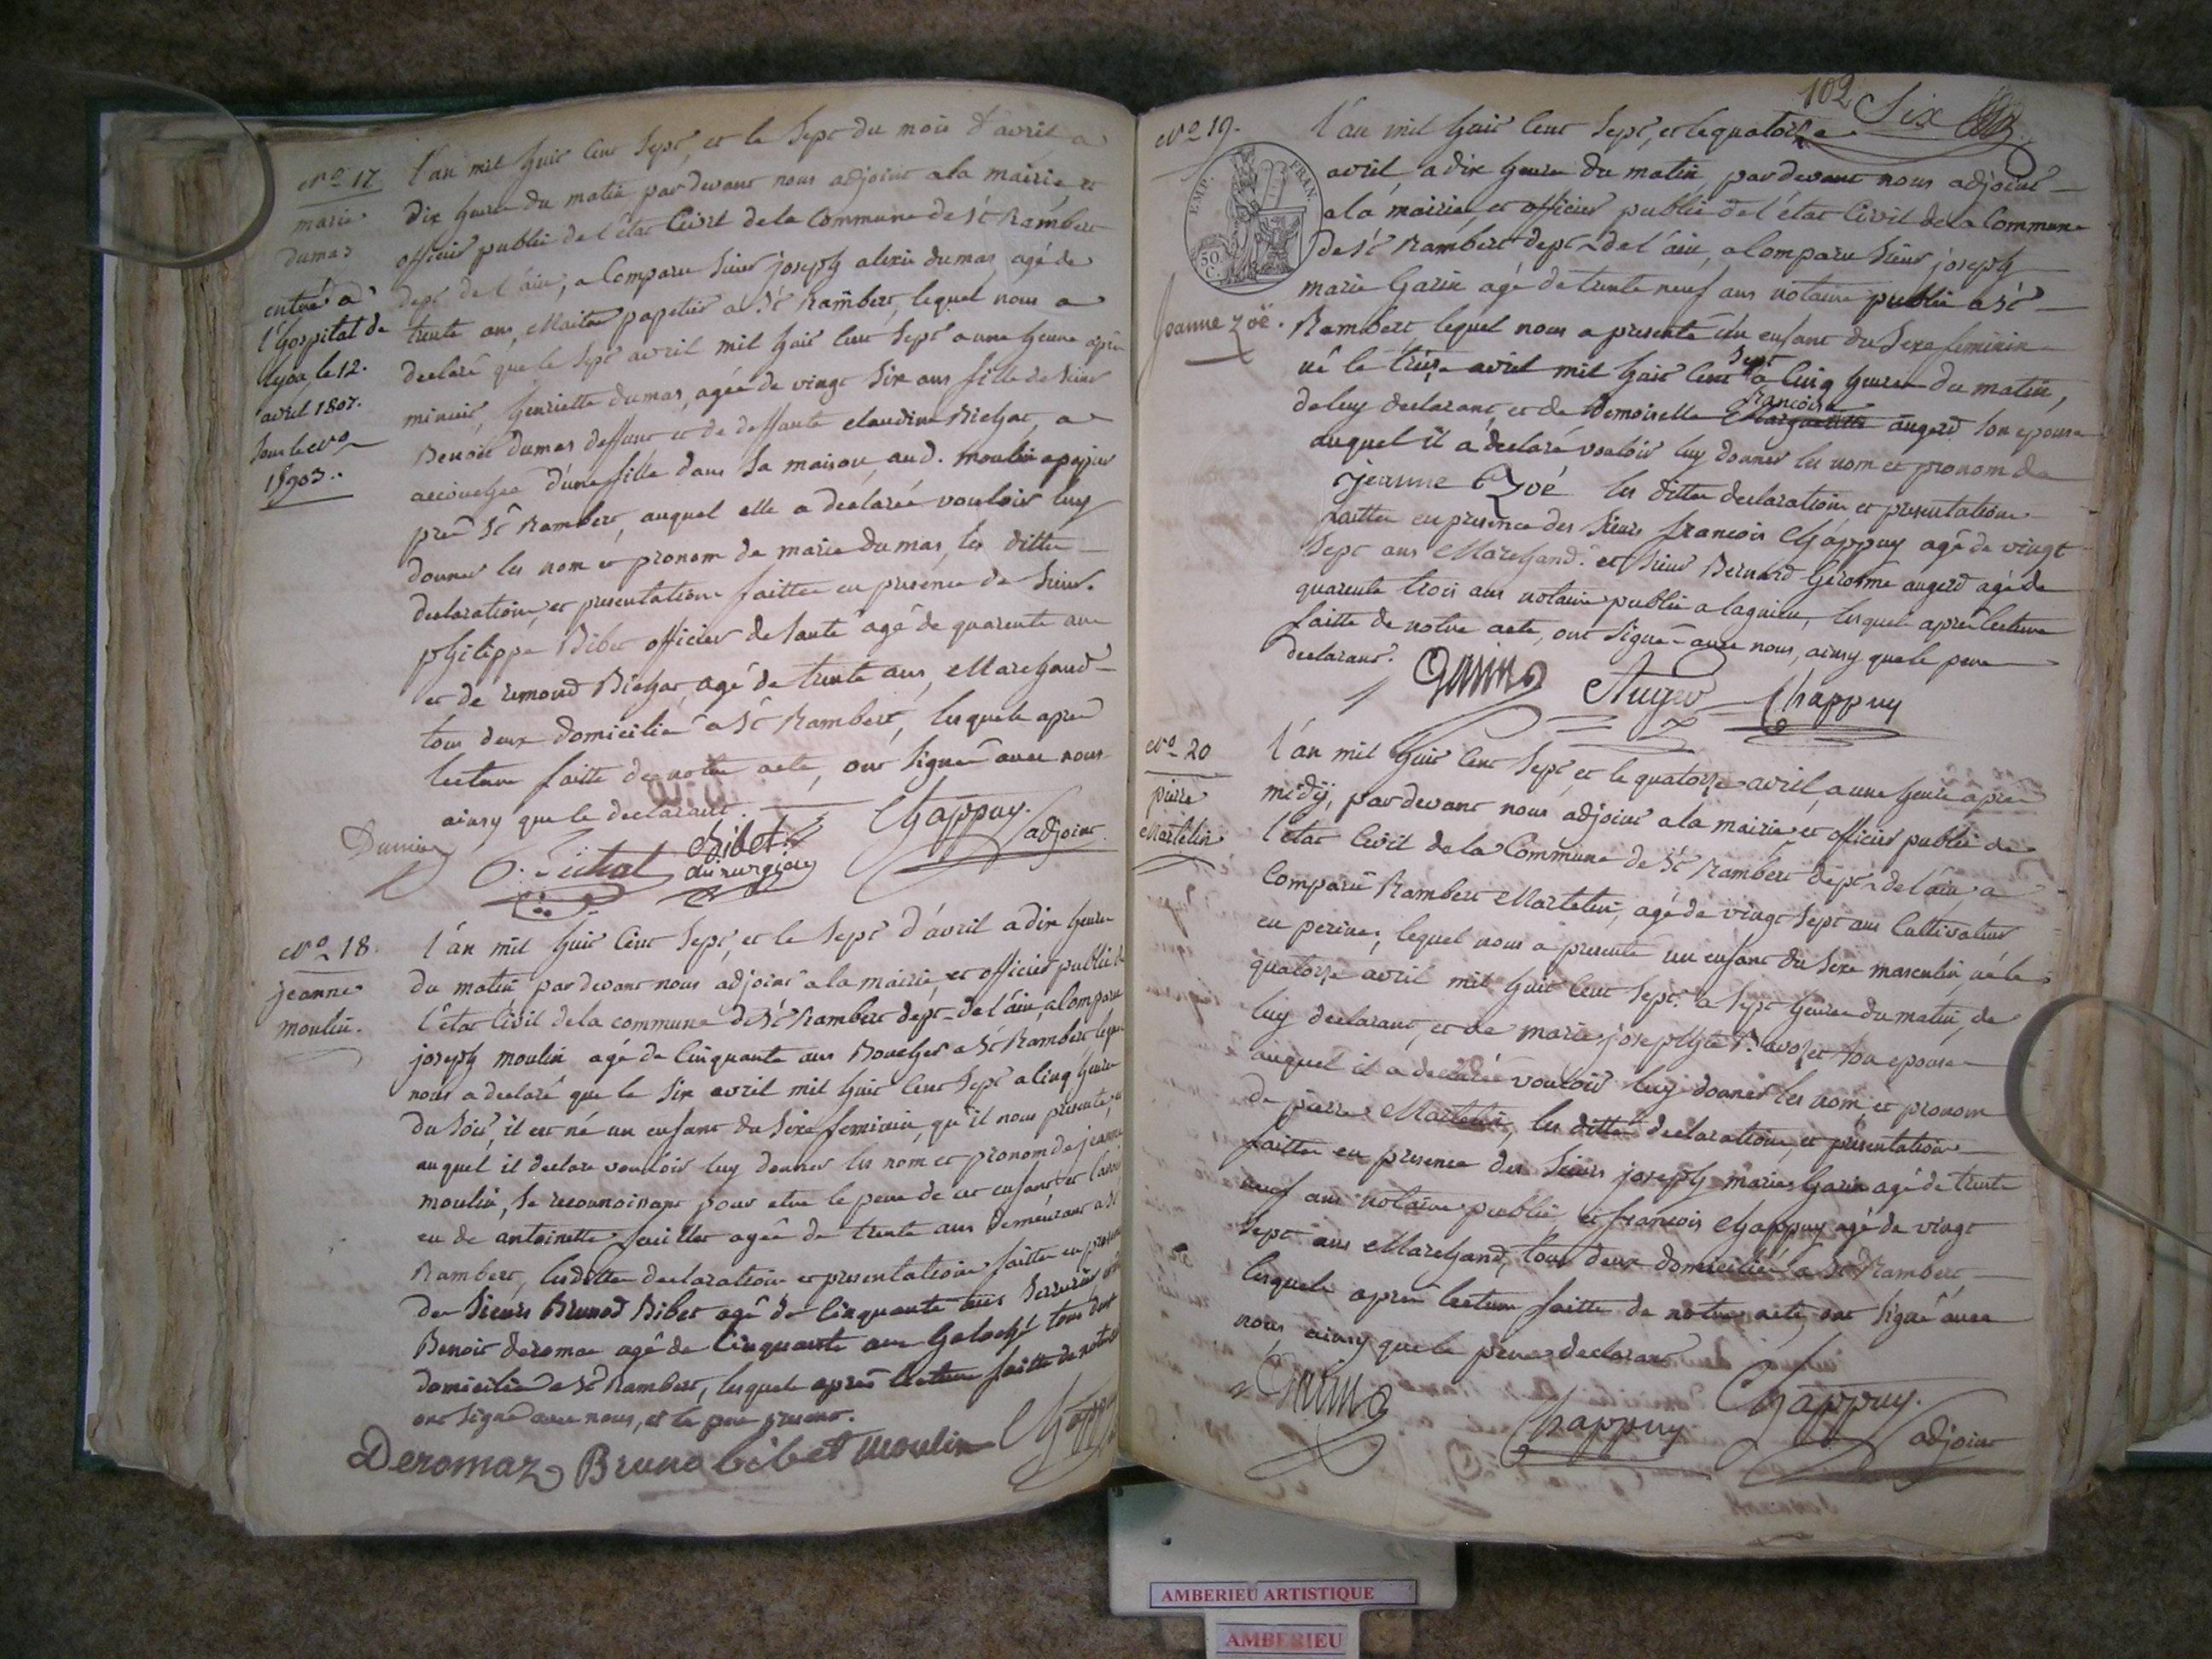 No 17.
marie
dumas
entré a
l'hospital de
lyon, le 12.
avril 1807.
sous le No
1903..
l'an mil huit cent sept, et le sept du mois d'avril a
dix heures du matin par devant nous adjoint a la mairie et
officier public de l'état civil de la commune de St Rambert
dept de l'ain, a comparu sieur joseph alexis dumas, agé de
trente ans, Maitre papetier a St Rambert, lequel nous a
declaré que le sept avril mil huit cent sept a une heure après
minuit, henriette dumas, agée de vingt six ans fille de sieur
Benoit dumas deffunt et de deffunte claudine Bichat, a
accouchée d'une fille dans sa maison, aud. moulin a papier
près St Rambert, auquel elle a declarée vouloir luy
donner les nom et pronom de marie dumas, les dittes
declaration, et presentation faittes en presence de sieur
philippe Bibet officier de santé agé de quarante ans
et de remond Bichat, agé de trente ans, Marchand
tous deux domicilié a St Rambert, lesquels après
lecture faitte de notre acte, ont signé avec nous
ainsy que le declarant.
Dumas
Bichat
Bibet
chirurgien
Chappuy.
adjoint.
No 18.
jeanne
moulin.
l'an mil huit cent sept, et le sept d'avril a dix heures
du matin par devant nous adjoint a la mairie et officier public de
l'état civil de la commune de St Rambert dept de l'ain, a comparu
joseph moulin agé de cinquante ans Boucher a St Rambert lequel
nous a declaré que le six avril mil huit cent sept a cinq heures
du soir, il est né un enfant du sexe feminin, qu'il nous presente, et
auquel il declare vouloir luy donner les nom et pronom de jeanne
moulin, se reconnoissant pour etre le pere de cet enfant et l'avoir
eu de antoinette agée de trente ans demeurant a St
Rambert, lesdittes declaration et presentation faitte en presence
des sieurs Bruno Bibet agé de cinquante trois serrurier
Benoit deromas agé de cinquante ans Galoché tous deux
domicilié a St Rambert, lesquels après lecture faitte de notre acte
ont signé avec nous, et le pere present.
Deromaz Bruno bibet Moulin Chappuy
102 Six
No 19.
EMP. FRAN.
50 C.
Jeanne Zoë.
l'an mil huit cent sept, et le quatorze
avril, a dix heures du matin par devant nous adjoint
a la mairie, et officier public de l'état civil de la commune
de St Rambert dept de l'ain, a comparu sieur joseph
marie Garin agé de trente neuf ans notaire public a St
Rambert, lequel nous a presenté un enfant du sexe feminin
né le treize avril mil huit cent sept a cinq heures du matin,
de luy declarant, et de demoiselle françoise Marguerite augerd, son epouse
auquel il a declaré vouloir luy donner les nom et pronom de
jeanne Zoé les dittes declaration, et presentation
faittes en presence des sieurs françois Chappuy agé de vingt
sept ans Marchand. et sieur Bernard Gérosme augerd agé de
quarente trois ans notaire public a lagnieu, lesquels après lecture
faitte de notre acte, ont signé avec nous, ainsy que le pere
declarant.
Garin Auger Chappuy
No 20
pierre
Martelin
l'an mil huit cent sept, et le quatorze avril, a une heure après
midÿ, par devant nous adjoint a la mairie, et officier public de
l'état civil de la commune de St Rambert dept de l'ain, a
comparu Rambert Martelin, agé de vingt sept ans cultivateur
en perines, lequel nous a presenté un enfant du sexe masculin, né le
quatorze avril mil huit cent sept. a sept heures du matin, de
luy declarant, et de marie josephte Ravozet son epouse
auquel il a declaré vouloir luy donner les nom, et pronom
de pierre Martelin, les dittes declaration, et presentation
faittes en presence des sieurs joseph marie Garin agé de trente
neuf ans notaire public, et françois Chappuy agé de vingt
sept ans Marchand, tous deux domicilié a St Rambert,
lesquels après lecture faitte de notre acte, ont signé avec
nous, ainsy que le pere declarant
Garin Chappuy Chappuy.
adjoint
AMBERIEU ARTISTIQUE
AMBERIEU